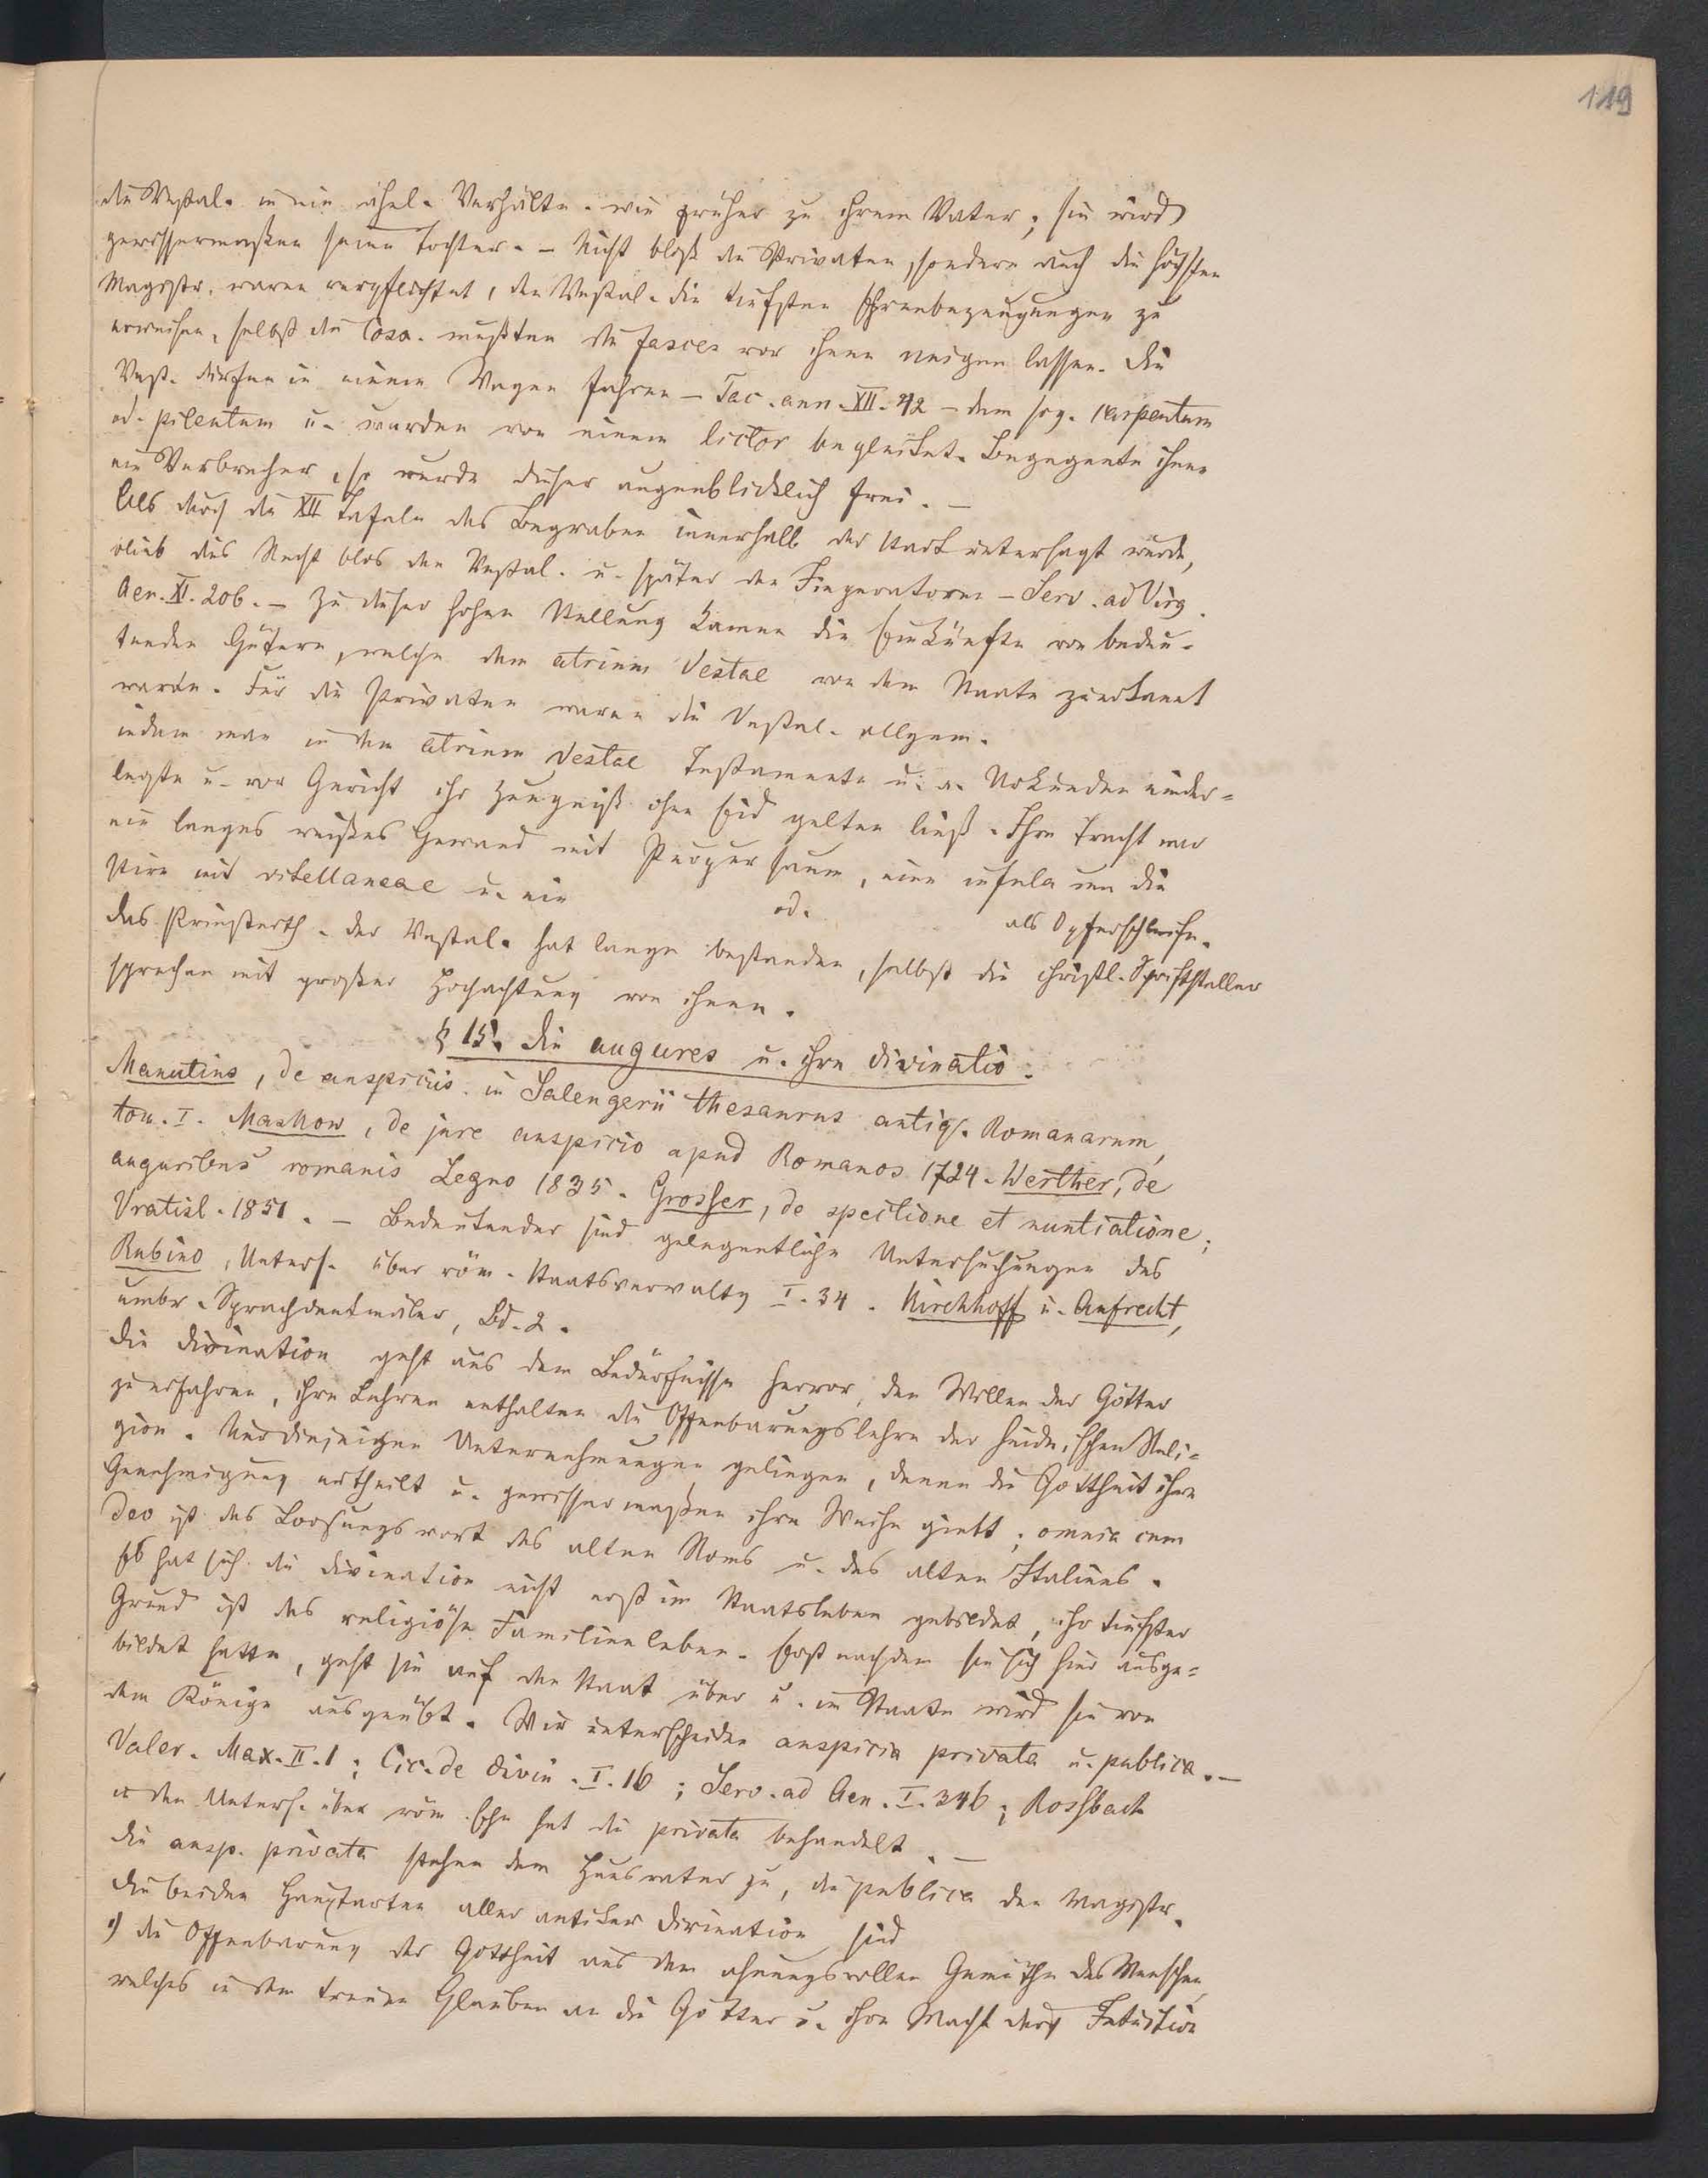 119
die Vestal. in ein ähnl. Verhältn. wie früher zu ihrem Vater; sie wird
gewissermaßen seine Tochter. – Nicht bloß die Privaten, sondern auch die höchsten
Magistr. waren verpflichtet, den Vestal. die tiefsten Ehrenbezeugungen zu
erweisen, selbst die Coss. mußten die fasces vor ihnen neigen lassen. Die
Vest. durften in einem Wagen fahren – Tac. ann. XII. 42 – dem sog. carpentum
od. pilentum u. wurden von einem lictor begleitet. Begegnete ihnen
ein Verbrecher, so wurde dieser augenblicklich frei. –
Als durch die XII Tafeln das Begraben innerhalb der Stadt untersagt wurde,
blieb dies Recht blos den Vestal. u. später den Imperatoren – Serv. ad Virg.
Aen. XI. 206. – Zu dieser hohen Stellung kamen die Einkünfte von bedeu-
tenden Gütern, welche dem atrium Vestae von dem Staate zuerkannt
waren. Für die Privaten waren die Vestal. allgem.
indem man in dem atrium Vestae Testamente u. a. Urkunden nieder-
legte u. vor Gericht ihr Zeugniß ohne Eid gelten ließ. Ihre Tracht war
ein langes weißes Gewand mit Purpursaum, eine infula um die
Stirn mit vitellaneae u. ein od. als Opferschleife.
Das Priesterth. der Vestal. hat lange bestanden, selbst die christl. Schriftsteller
sprechen mit großer Hochachtung von ihnen.
§ 15. Die augures u. ihre divinatio.
Manutius, de auspiciis in Salengerii thesaurus antiq. Romanarum,
tom. I. Maskow, de jure auspicio apud Romanos 1724. Werther, de
auguribus romanis Legno 1835. Grosser, de spectione et nuntiatione;
Vratisl. 1851. – Bedeutender sind gelegentliche Untersuchungen des
Rubino, Unters. über röm. Staatsverwaltg I. 34. Kirchhoff u. Aufrecht,
umbr. Sprachdenkmäler, Bd. 2.
Die Divination geht aus dem Bedürfnisse hervor, den Willen der Götter
zu erfahren, ihre Lehren enthalten die Offenbarungslehre der heidnischen Reli-
gion. Nur diejenigen Unternehmungen gelingen, denen die Gottheit ihre
Genehmigung ertheilt u. gewissermaßen ihre Weihe giebt; omnia cum
deo ist das Loosungswort des alten Roms u. des alten Italiens.
Es hat sich die Divination nicht erst im Staatsleben gebildet, ihr tiefster
Grund ist das religiöse Familienleben. Erst nachdem sie sich hier ausge-
bildet hatte, geht sie auf den Staat über u. im Staate wird sie von
dem Könige ausgeübt. Wir unterscheiden auspicia privata u. publica. –
Valer. Max. II. 1; Cic. de divin. I. 16; Serv. ad Aen. I. 346; Rossbach
in den Unters. über röm. Ehe hat die privata behandelt. –
Die ausp. privata stehen dem Hausvater zu, die publica den Magistr.
Die beiden Hauptarten aller antiker Divination sind
1) die Offenbarung der Gottheit aus dem ahnungsvollen Gemüthe des Menschen,
welches in dem treuen Glauben an die Götter u. ihre Macht durch Intuition